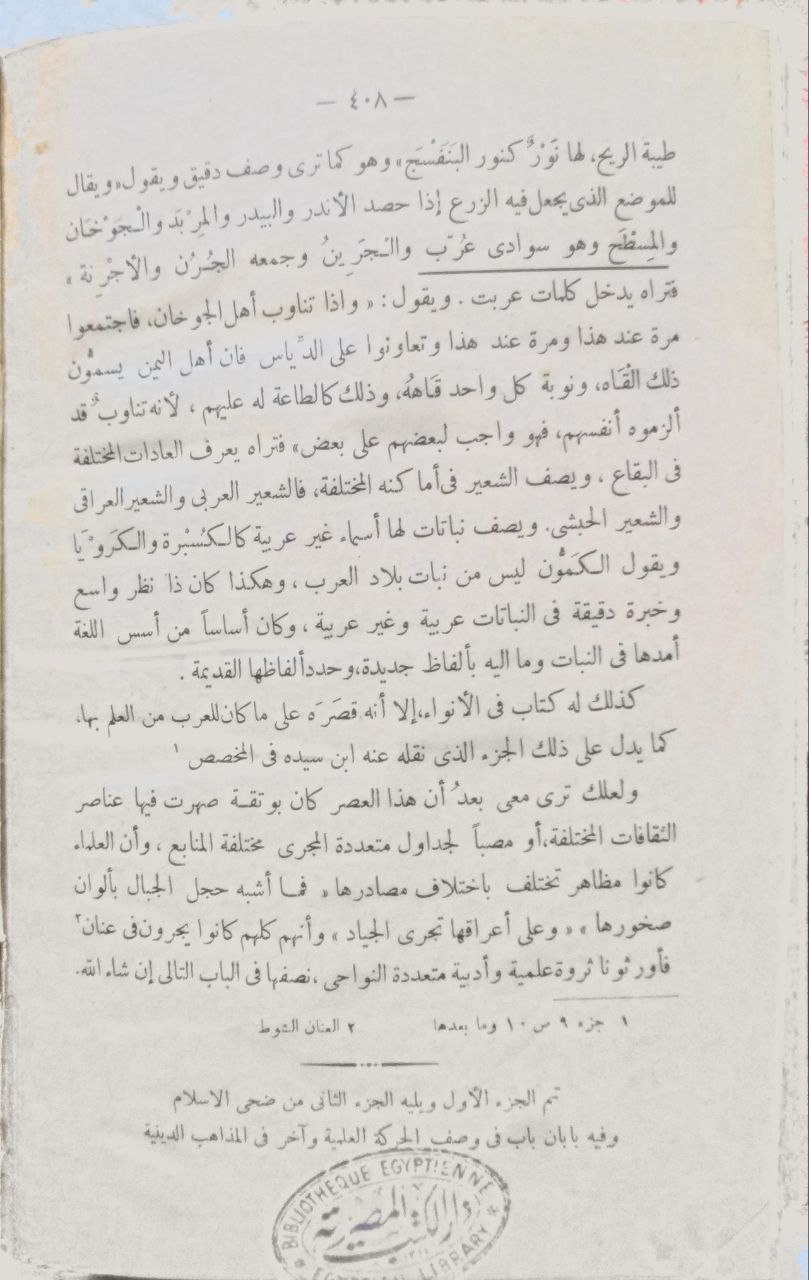 — ٤٠٨ —
طيبة الريح، لها نَوْرٌ كنور البَنَفْسَج» وهو كما ترى وصف دقيق ويقول «ويقال
للموضع الذى يجعل فيه الزرع إذا حصد الأندر والبيدر والمِرْبَد والجَوْخَان
والمِسْطَح وهو سوادى عُرّب والجَرِينُ وجمعه الجُرُن والأجْرِنة »
فتراه يدخل كلمات عربت . ويقول : « واذا تناوب أهل الجوخان، فاجتمعوا
مرة عند هذا ومرة عند هذا وتعاونوا على الدِّياس فان أهل اليمن يسمُّون
ذلك القَاه، ونوبة كل واحد قَاههُ، وذلك كالطاعة له عليهم ، لأنه تناوبٌ قد
ألزموه أنفسهم، فهو واجب لبعضهم على بعض» فتراه يعرف العادات المختلفة
فى البقاع ، ويصف الشعير فى أماكنه المختلفة، فالشعير العربى والشعير العراقى
والشعير الحبشى. ويصف نباتات لها أسماء غير عربية كالكُسْبَرة والكَرَوْيَا
ويقول الكَمُّون ليس من نبات بلاد العرب ، وهكذا كان ذا نظر واسع
وخبرة دقيقة فى النباتات عربية وغير عربية ، وكان أساساً من أسس اللغة
أمدها فى النبات وما اليه بألفاظ جديدة، وحدد ألفاظها القديمة .
كذلك له كتاب فى الأنواء، إلا أنه قصَرَه على ما كان للعرب من العلم بها،
كما يدل على ذلك الجزء الذى نقله عنه ابن سيده فى المخصص ١
ولعلك ترى معى بعدُ أن هذا العصر كان بوتقة صهرت فيها عناصر
الثقافات المختلفة، أو مصباً لجداول متعددة المجرى مختلفة المنابع ، وأن العلماء
كانوا مظاهر تختلف باختلاف مصادرها « فما أشبه حجل الجبال بألوان
صخورها » « وعلى أعراقها تجرى الجياد » وأنهم كلهم كانوا يجرون فى عنان ٢
فأورثونا ثروة علمية وأدبية متعددة النواحى ، نصفها فى الباب التالى إن شاء الله.
١ جزء ٩ ص ١٠ وما بعدها ٢ العنان الشوط
تم الجزء الأول ويليه الجزء الثانى من ضحى الاسلام
وفيه بابان باب فى وصف الحركة العلمية وآخر فى المذاهب الدينية
BIBLIOTHEQUE EGYPTIENNE
دار الكتب المصرية
EGYPTIAN LIBRARY